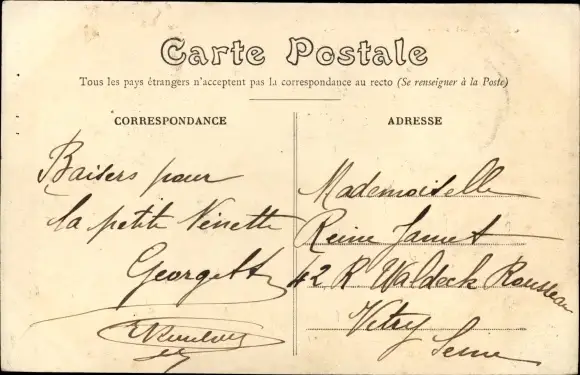 Carte Postale
Tous les pays étrangers n'acceptent pas la correspondance au recto (Se renseigner à la Poste)
CORRESPONDANCE
Baisers pour
la petite Ninette
Georgette
ADRESSE
Mademoiselle
Reine Jamet
42 R Waldeck Rousseau
Vitry
Seine